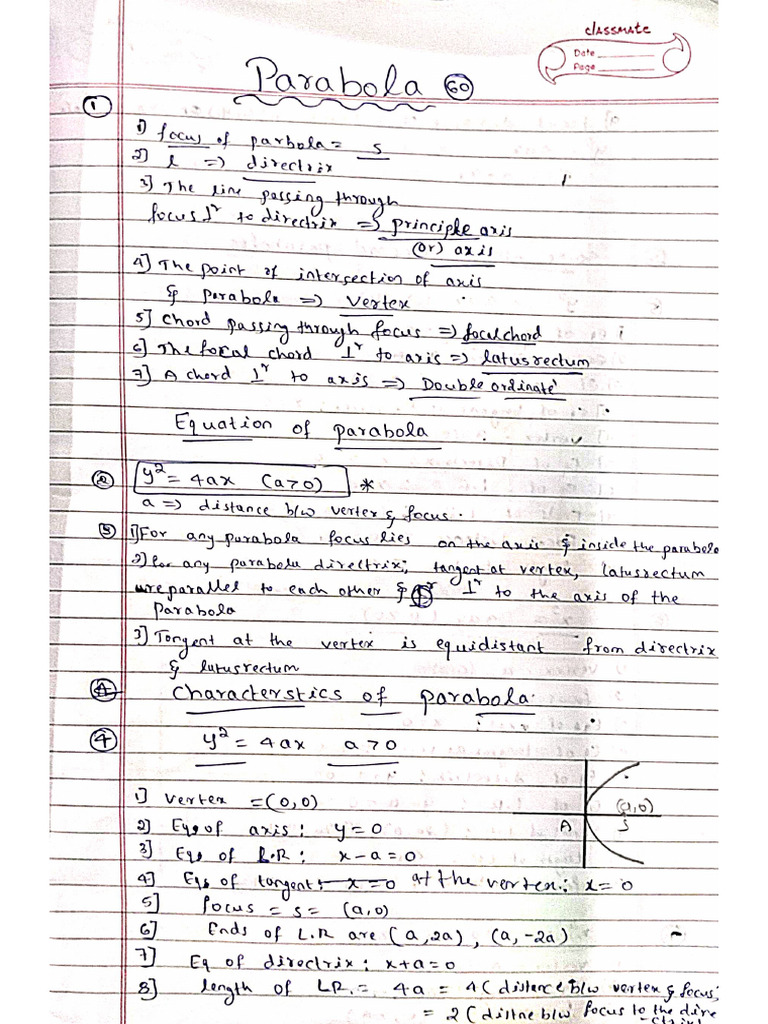 classmate
Date
Page
Parabola 60
① 1) focus of parbola = s
2] l => directrix
3] The line passing through
focus ⊥r to directrix => principle axis
(or) axis
4] The point of intersection of axis
& parabola => vertex
5] chord passing through focus => focalchord
6] The focal chord ⊥r to axis => latusrectum
7] A chord ⊥r to axis => Double ordinate
Equation of parabola
② y² = 4ax (a>0) *
a => distance b/w vertex & focus.
③ 1]For any parabola focus lies on the axis & inside the parabola
2]for any parabola direltrix; tangent at vertex, latusrectum
are parallel to each other & ⊥r to the axis of the
parabola
3] Tangent at the vertex is equidistant from directrix
& latusrectum
④ characterstics of parabola
④ y² = 4ax a>0
1] vertex = (0,0)
2] Eqs of axis: y=0
3] Eqs of L.R: x-a=0
4] Eqs of tangent: x=0 at the vertex: x=0
5] focus = s = (a,0)
6] Ends of L.R are (a,2a), (a,-2a)
7] Eq of directrix: x+a=0
8] length of LR. = 4a = 4(distance b/w vertex & focus)
= 2(distne b/w focus to the dire
ctrix
(a,0)
A S